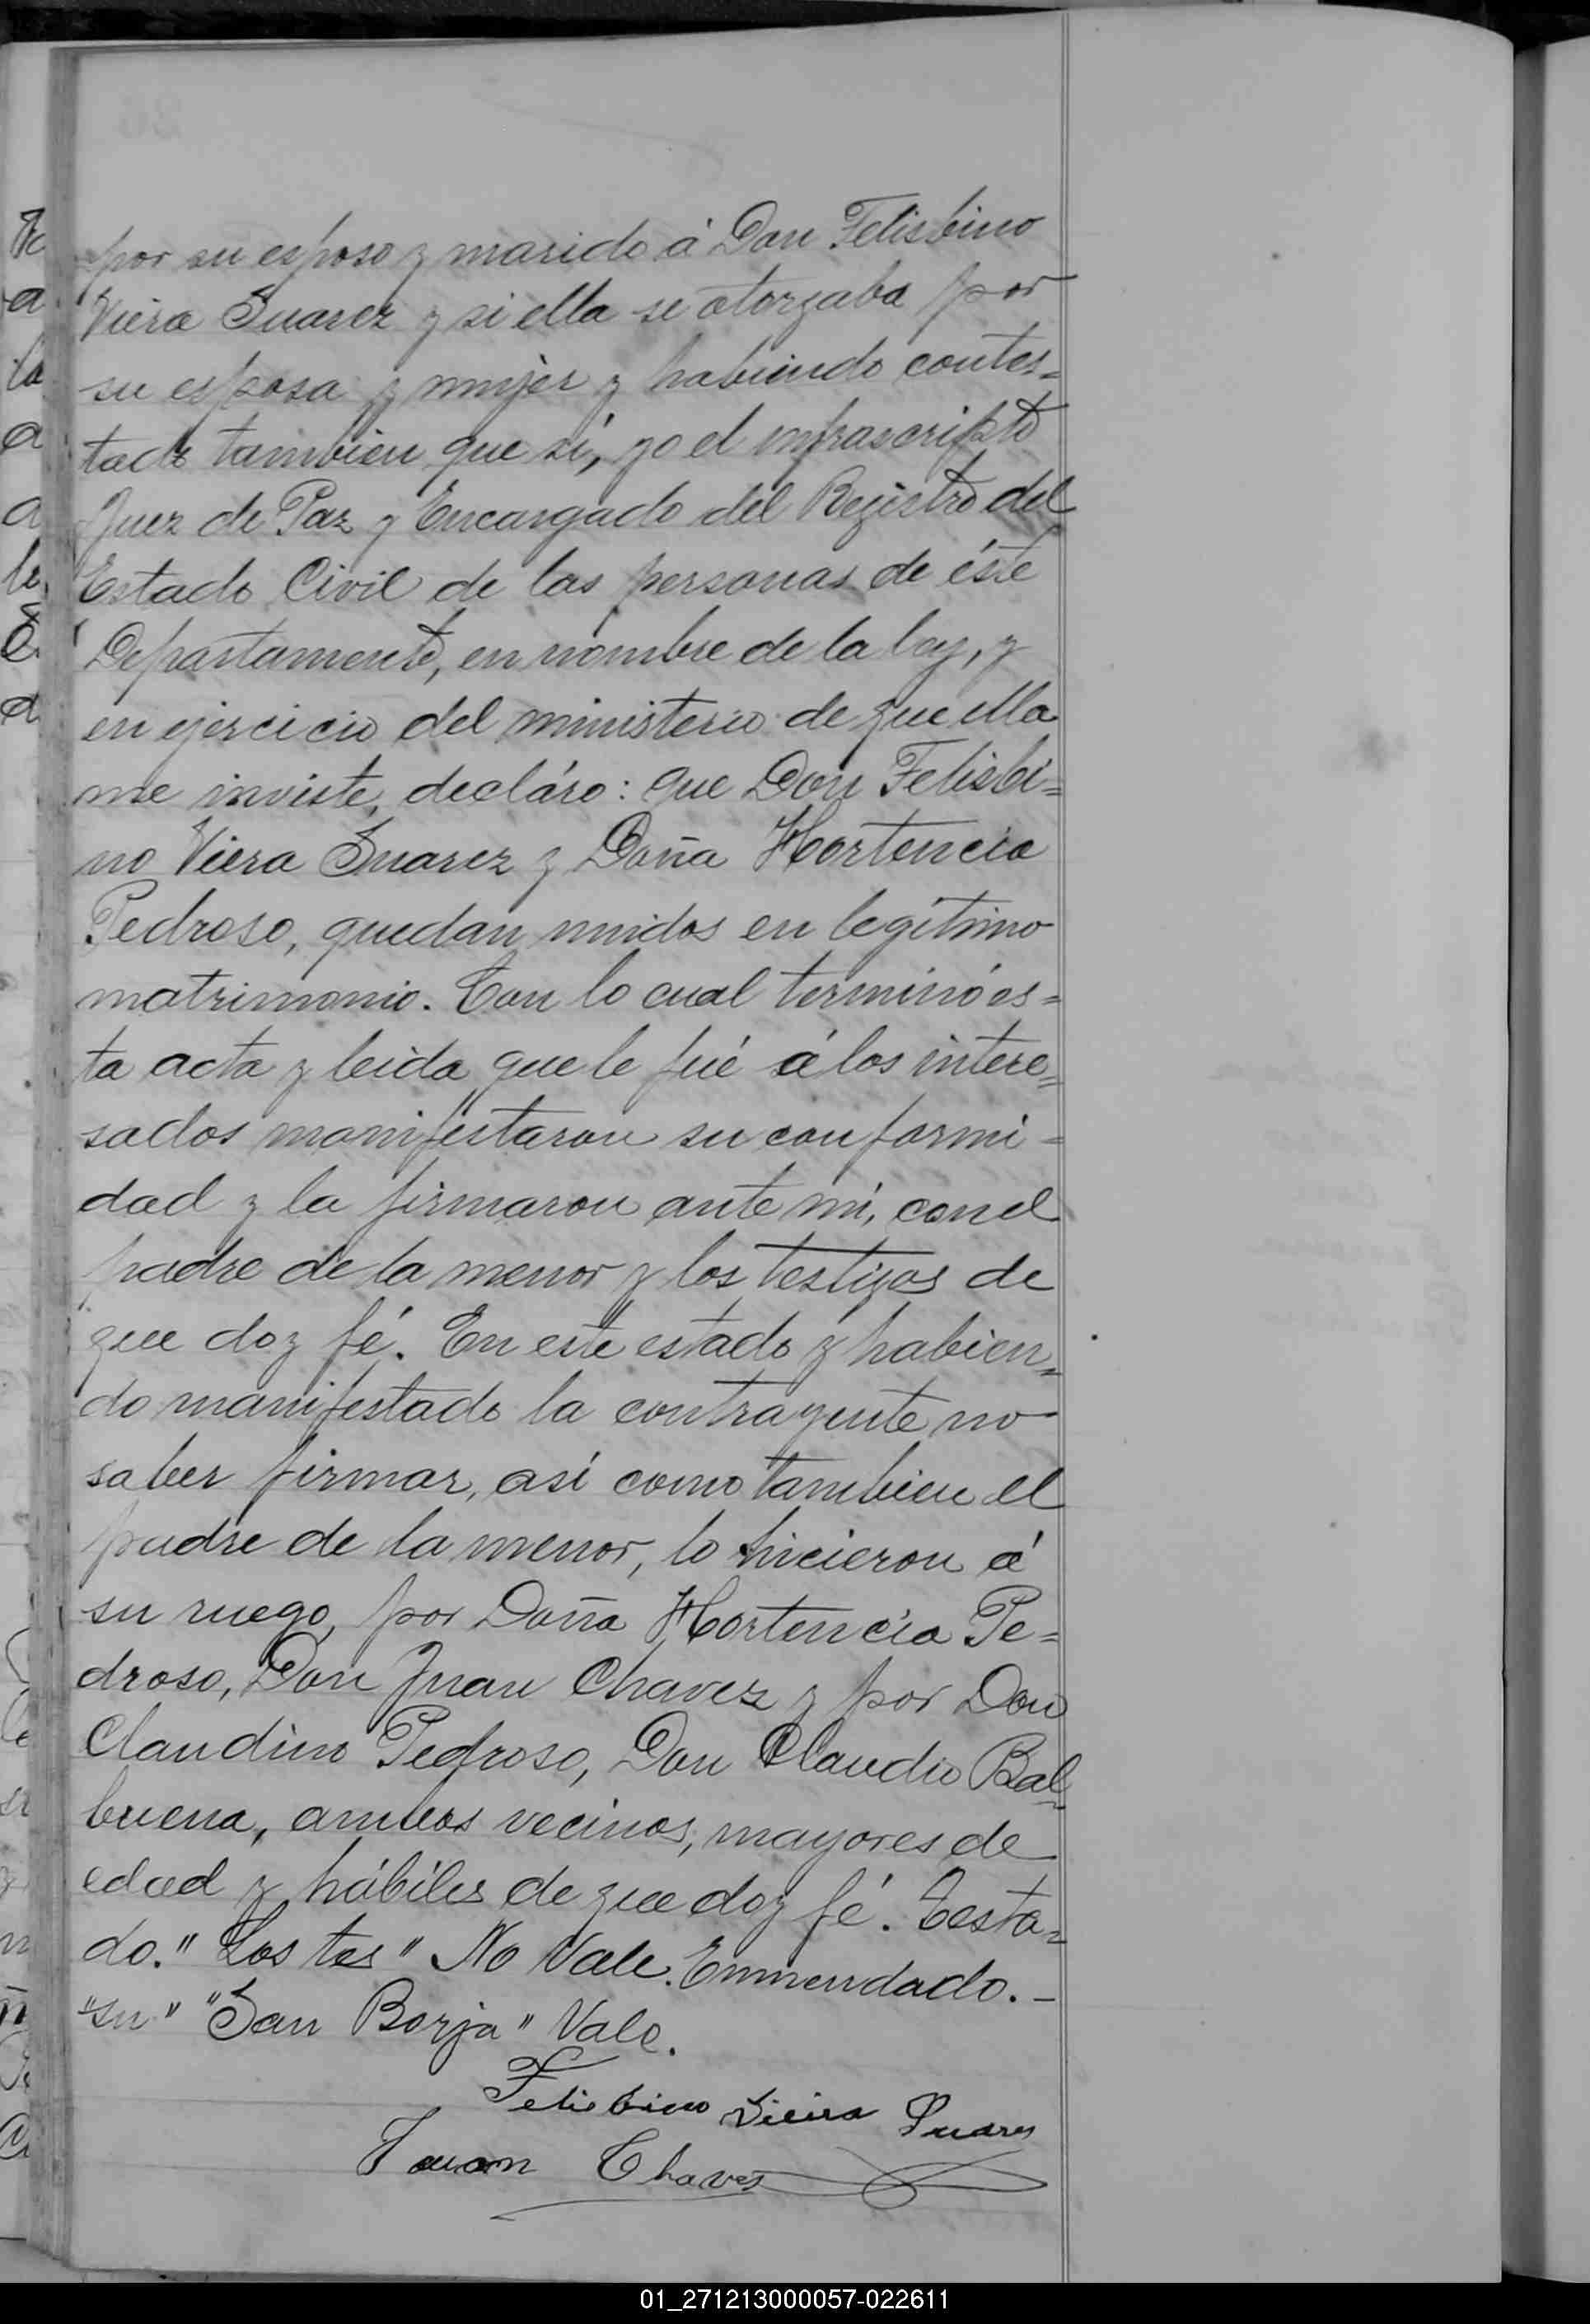 por su esposo y marido á Don Felisbino
Viera Suarez y si ella se otorgaba por
su esposa y mujer y habiendo contes=
tado tambien que sí, yo el infrascripto
Juez de Paz y Encargado del Registro del
Estado Civil de las personas de éste
Departamento, en nombre de la ley, y
en ejercicio del ministerio de que ella
me inviste, decláro: que Don Felisbi=
no Viera Suarez y Doña Hortencia
Pedroso, quedan unidos en legítimo
matrimonio. Con lo cual terminó es=
ta acta y leida que le fué á los intere=
sados manifestaron su conformi=
dad y la firmaron ante mí, con el
padre de la menor y los testigos de
que doy fé. En este estado y habien=
do manifestado la contrayente no
saber firmar, así como tambien el
padre de la menor, lo hicieron á
su ruego, por Doña Hortencia Pe=
droso, Don Juan Chavez y por Don
Claudino Pedroso, Don Claudio Bal=
buena, ambos vecinos, mayores de
edad y hábiles de que doy fé. Testa=
do. "Los tes" No Vale. Enmendado. -
"su" "San Borja" Vale.
Felisbino Vieira Suares
Juan Chaves
01_271213000057-022611